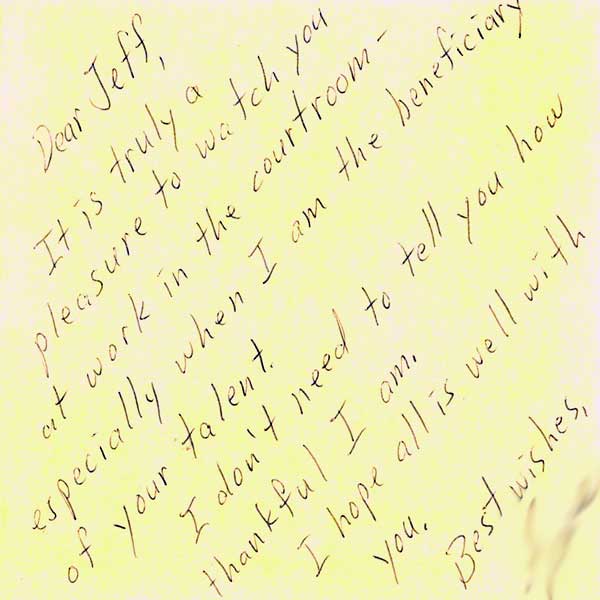 Dear Jeff,
It is truly a
pleasure to watch you
at work in the courtroom-
especially when I am the beneficiary
of your talent.
I don't need to tell you how
thankful I am.
I hope all is well with
you.
Best wishes,